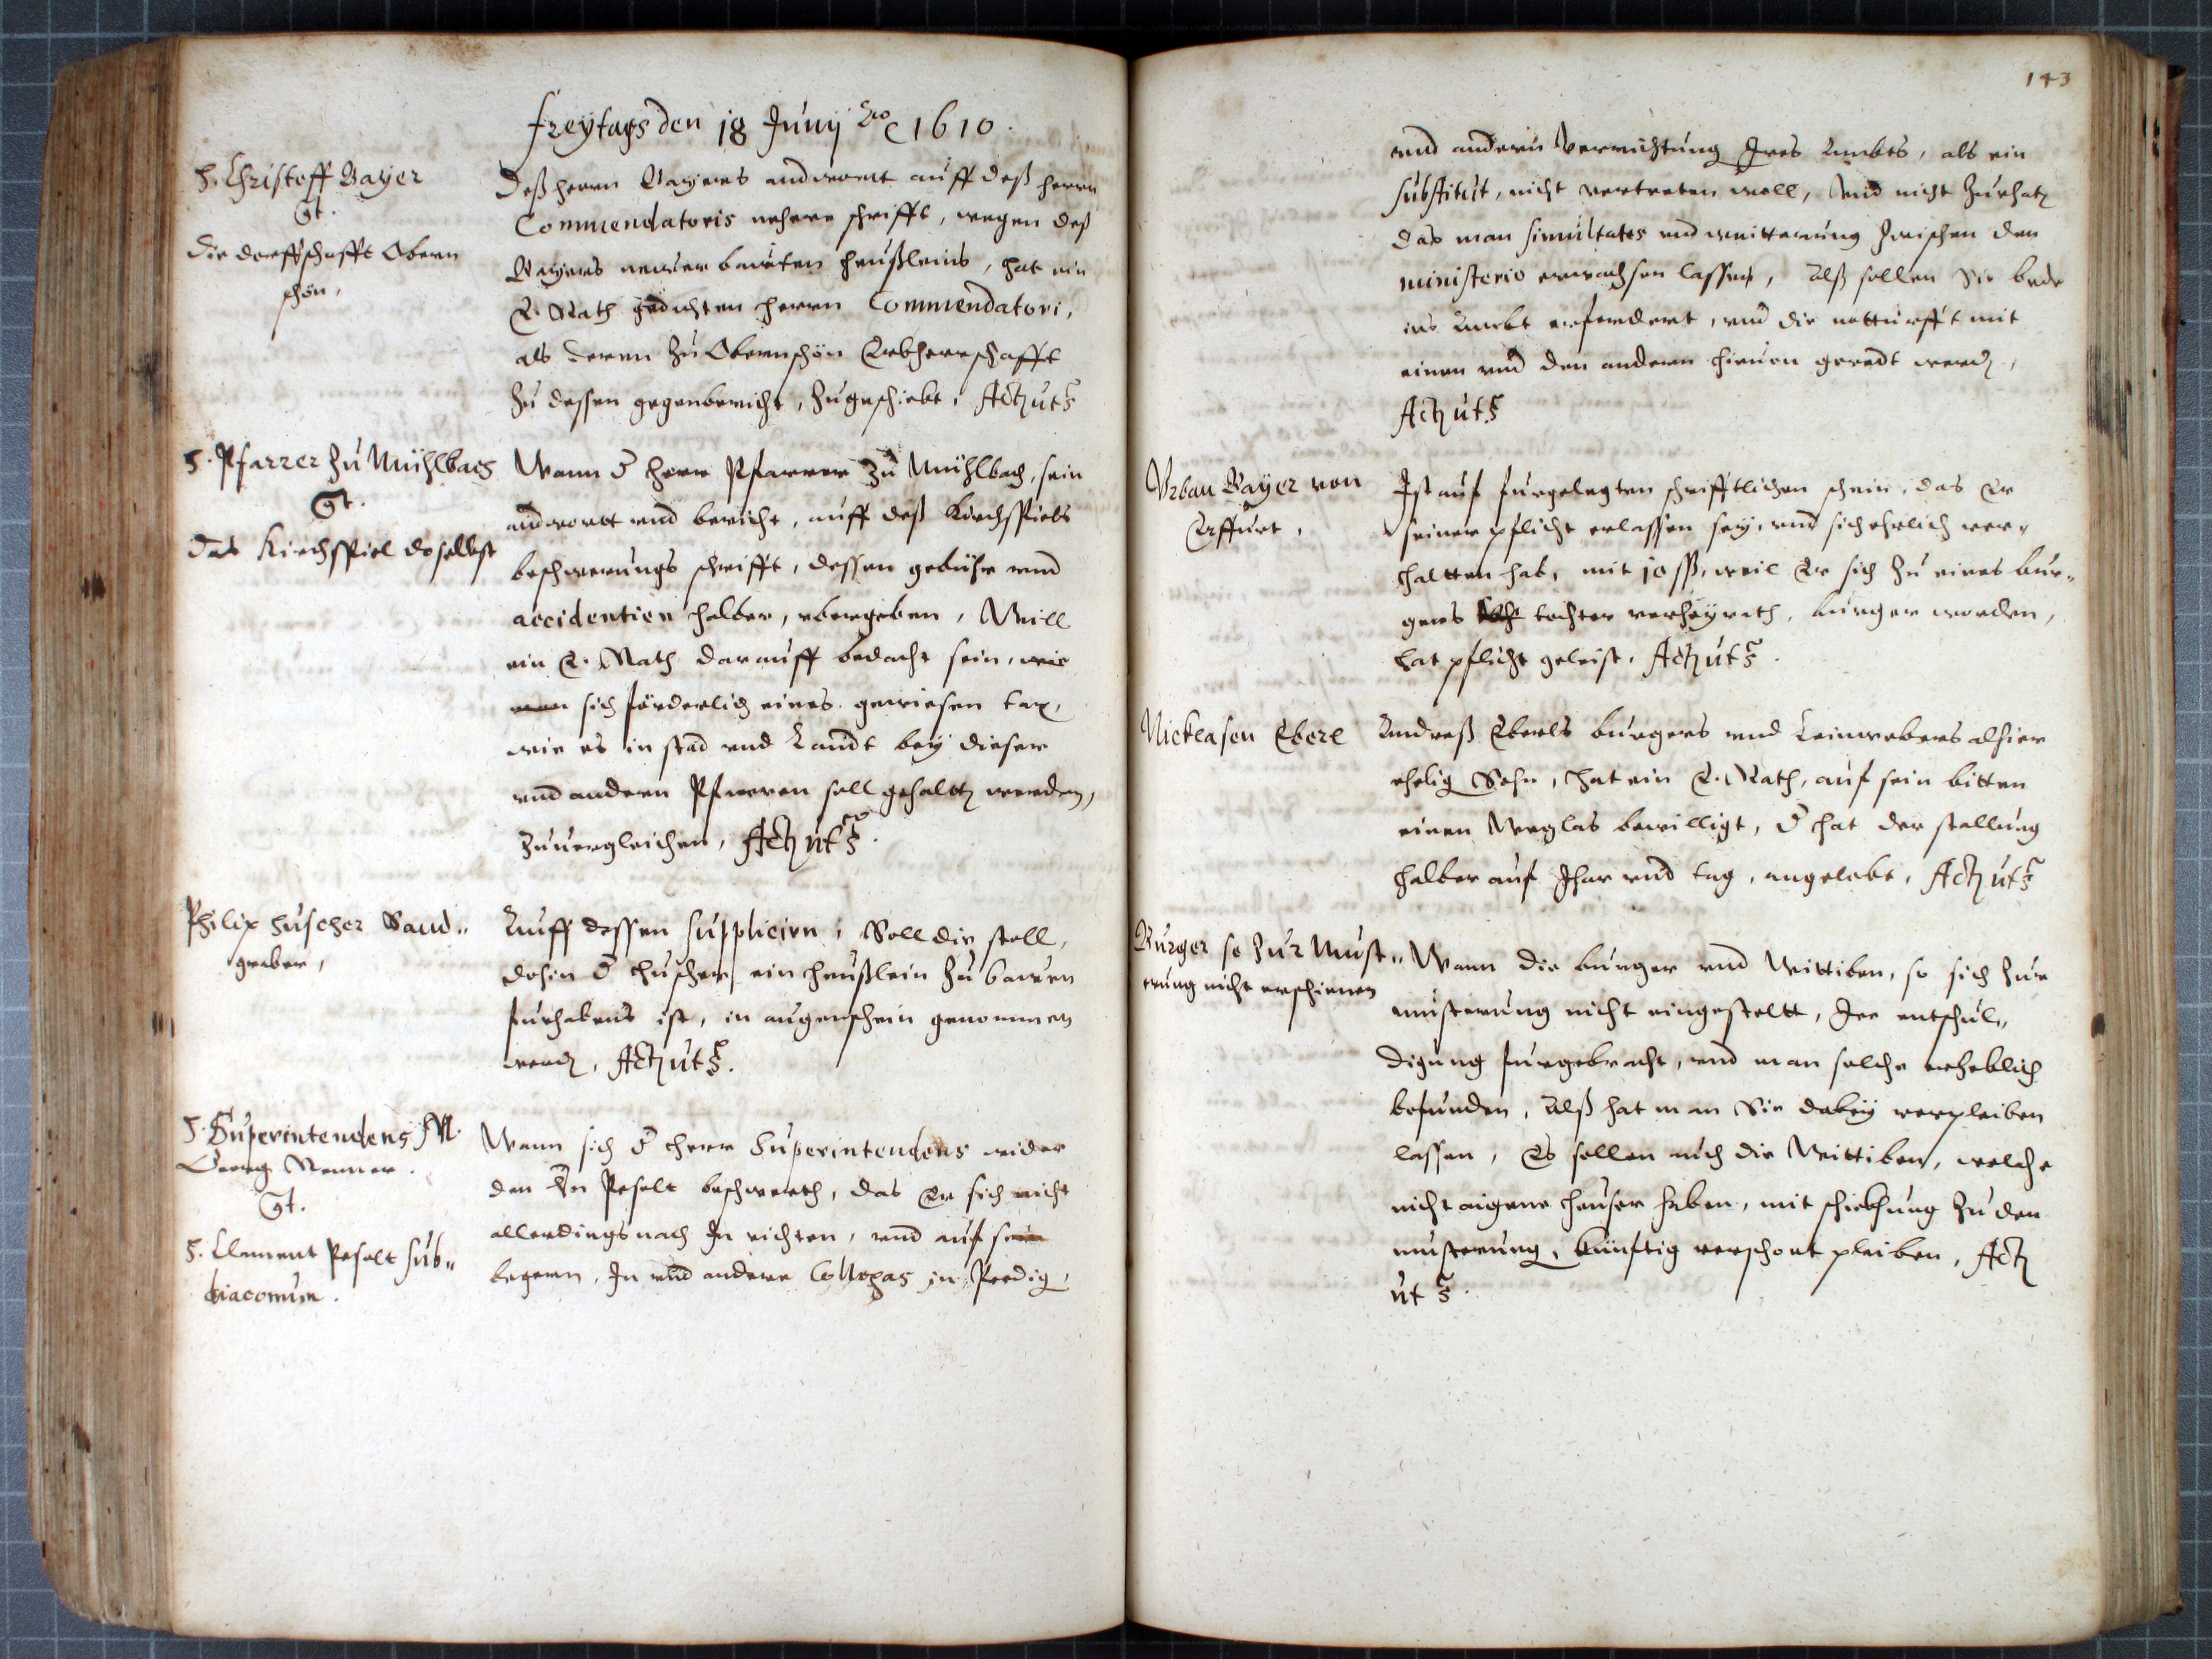 Freytags den 18 Junij Ao 1610.
H. Christoff Bayer
Ct.
die dorffschafft Obern
schön,
Deß herrn Bayers andwort auff deß herrn
Commendatoris nehere schrifft, wegen deß
Bayers newerbauten heußleins, hat ein
E. Rath gedachten herrn Commendatori,
als deren zu Obernschön Erbherrschafft
zu dessen gegenbericht, zugeschickt, Act ut s
H. Pfarrer zu Mühlbach
Ct.
das Kirchspiel doselbst
Wann d herr Pfarrer zu Mühlbach, sein
andwortt vnd bericht, auff deß Kirchspiels
beschwerungs schrifft, dessen gebühr vnd
accidentien halber, vbergeben, Will
ein E. Rath darauff bedacht sein, wie
man sich förderlich eines gewiesen tax,
wie es in stad vnd Landt bey dieser
vnd andern Pfarren soll gehaltten werden,
zuuergleichen, Act ut s.
Philip Huscher Sand„
greber,
Auff dessen supplicirn, Soll die stell,
dohin d Huscher ein heußlein zu bawen
furhabens ist, in augenschein genommen
werden, Act ut s.
H. Superintendens M.
Georg Renner.
Ct.
H. Clement Peselt sub„
diaconum.
Wann sich d herr Superintendens wider
den Hn Peselt beschwerth, das Er sich nicht
allerdings nach In richten, vnd auf sein
begern, In vnd andere Collegas in Predig,
143
vnd andern verrichtung Ires Ambts, als ein
substitut, nicht vertreten woll, Vnd nicht zurhaten
das man simultates vnd weitterung zwischen den
ministerio erwachsen lassen, Alß sollen Sie bede
ins Ambt erfordert, vnd die notturfft mit
einen vnd den andern hieuon geredt werden,
Act ut s
Vrban Bayer von
Erffurt,
Ist auf furgelegten schrifftlichen schein, das Er
seiner pflicht erlassen sey, vnd sich ehrlich ver„
haltten hab, mit 10 ß, weil Er sich zu eines bur„
gers tochter verheyrath, burger worden,
hat pflicht geleist, Act ut s.
Nicklasen Eberl
Andreß Eberls burgers vnd Leinwebers alhier
ehelig Sohn, hat ein E. Rath, auf sein bitten
einen Weglas bewilligt, d hat der stellung
halber auf Jhar vnd tag, angelobt, Act ut s
Burger so zur Must„
erung nicht erschienen
Wann die burger vnd Wittiben, so sich zur
musterung nicht eingestellt, Ire entschul„
digung furgebracht, vnd man solche erheblich
befunden, Alß hat man Sie dabey verpleiben
lassen, Es sollen auch die Wittiben, welche
nicht aigene heuser haben, mit schickung zu den
musterung, künftig verschont pleiben, Act
ut s.